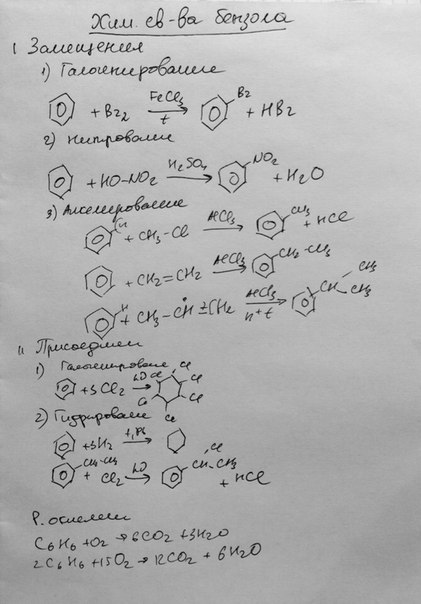 Хим. св-ва бензола
I Замещения
1) Галогенирование
+ Br2 FeCl3 t → Br + HBr
2) Нитрование
+ HO-NO2 H2SO4 → NO2 + H2O
3) Алкилирование
H + CH3-Cl AlCl3 → CH3 + HCl
+ CH2=CH2 AlCl3 → CH2-CH3
H + CH3-CH=CH2 AlCl3 H+t → CH CH3 CH3
II
1) Галогенирование
+ 3Cl2 hν → Cl Cl Cl Cl Cl
2) Гидрирование
+ 3H2 t, Pt →
CH2-CH3 + Cl2 hν → CH Cl CH3 + HCl
Р. окисления
C6H6 + O2 → 6CO2 + 3H2O
2C6H6 + 15O2 → 12CO2 + 6H2O